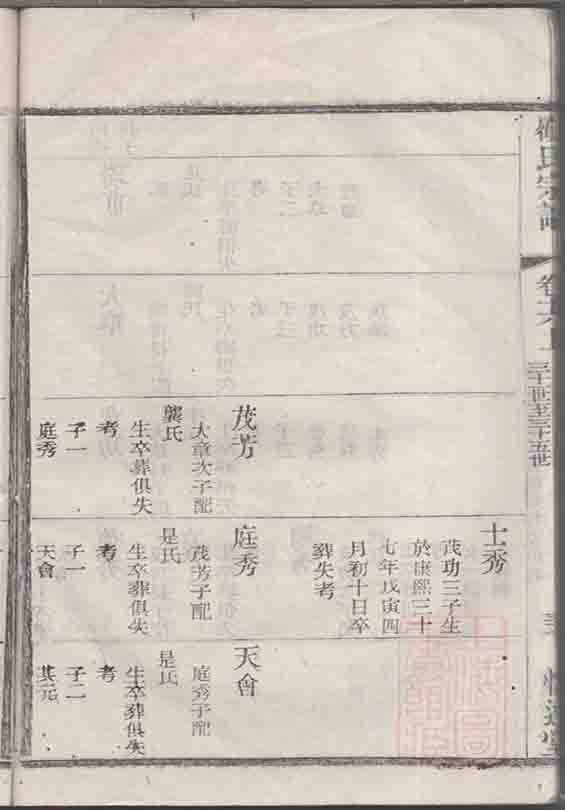 氏宗譜
三十一世至三十五世
茂芳
大章次子配
龔氏
生卒葬俱失
考
子一
庭秀
士秀
茂功三子生
於康熙三十
七年戊寅四
月初十日卒
葬失考
庭秀
茂芳子配
是氏
生卒葬俱失
考
子一
天會
天會
庭秀子配
是氏
生卒葬俱失
考
子二
其元